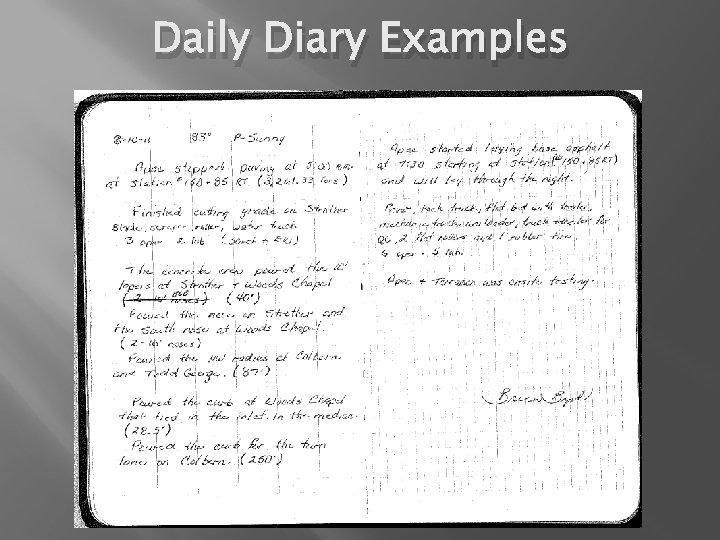 Daily Diary Examples
8-10-11 83° P-Sunny
Apac stopped paving at 5:00 am
at station 150+85 RT. (3,261.33 Tons)
Finished cutting grade on Strother
Blade, scraper, roller, water truck
3 oper 2 lab
The concrete crew poured the 10'
tapers at Strother + Woods Chapel
(2-10' noses) (40')
Poured the nose on Strother and
the South nose at Woods Chapel.
(2-10' noses)
Poured the NW radius at Colbern
and Todd George. (87')
Poured the curb at Woods Chapel
that tied in the inlet in the median.
(28.5')
Poured the curb for the turn
lane on Colbern. (250')
Apac started laying base asphalt
at 7:30 starting at station 150+85 RT)
and will lay through the night.
tack truck, flat bed with trailer,
truck for
QC, 2 flat rollers and 1 rubber tire
6 oper. 5 lab.
Apac + Terracon was onsite testing.